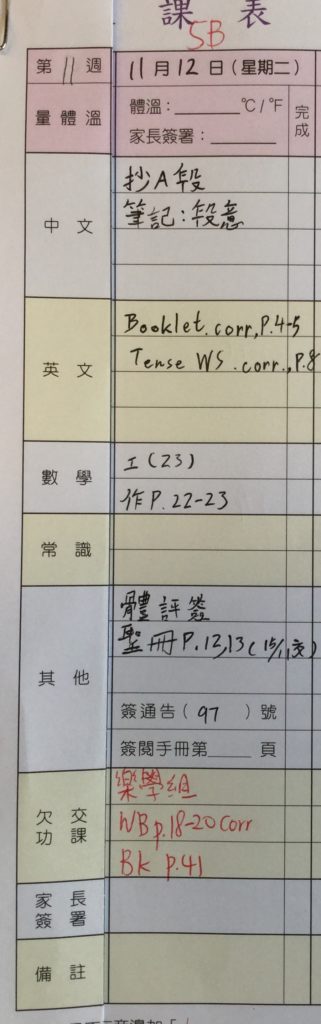 課 表
5B
第 11 週 11 月 12 日 (星期二)
量體溫 體溫: ℃/℉ 完成
家長簽署:
中 文 抄A段
筆記:段意
英 文 Booklet.corr,P.4-5
Tense WS.corr.,P.8
數 學 工(23)
作P.22-23
常 識
其 他 體評簽
聖冊P.12,13(15/11交)
簽通告( 97 )號
簽閱手冊第 頁
欠 交 功 課 樂學組
WB p.18-20 corr
BK p.41
家 長 簽 署
備 註